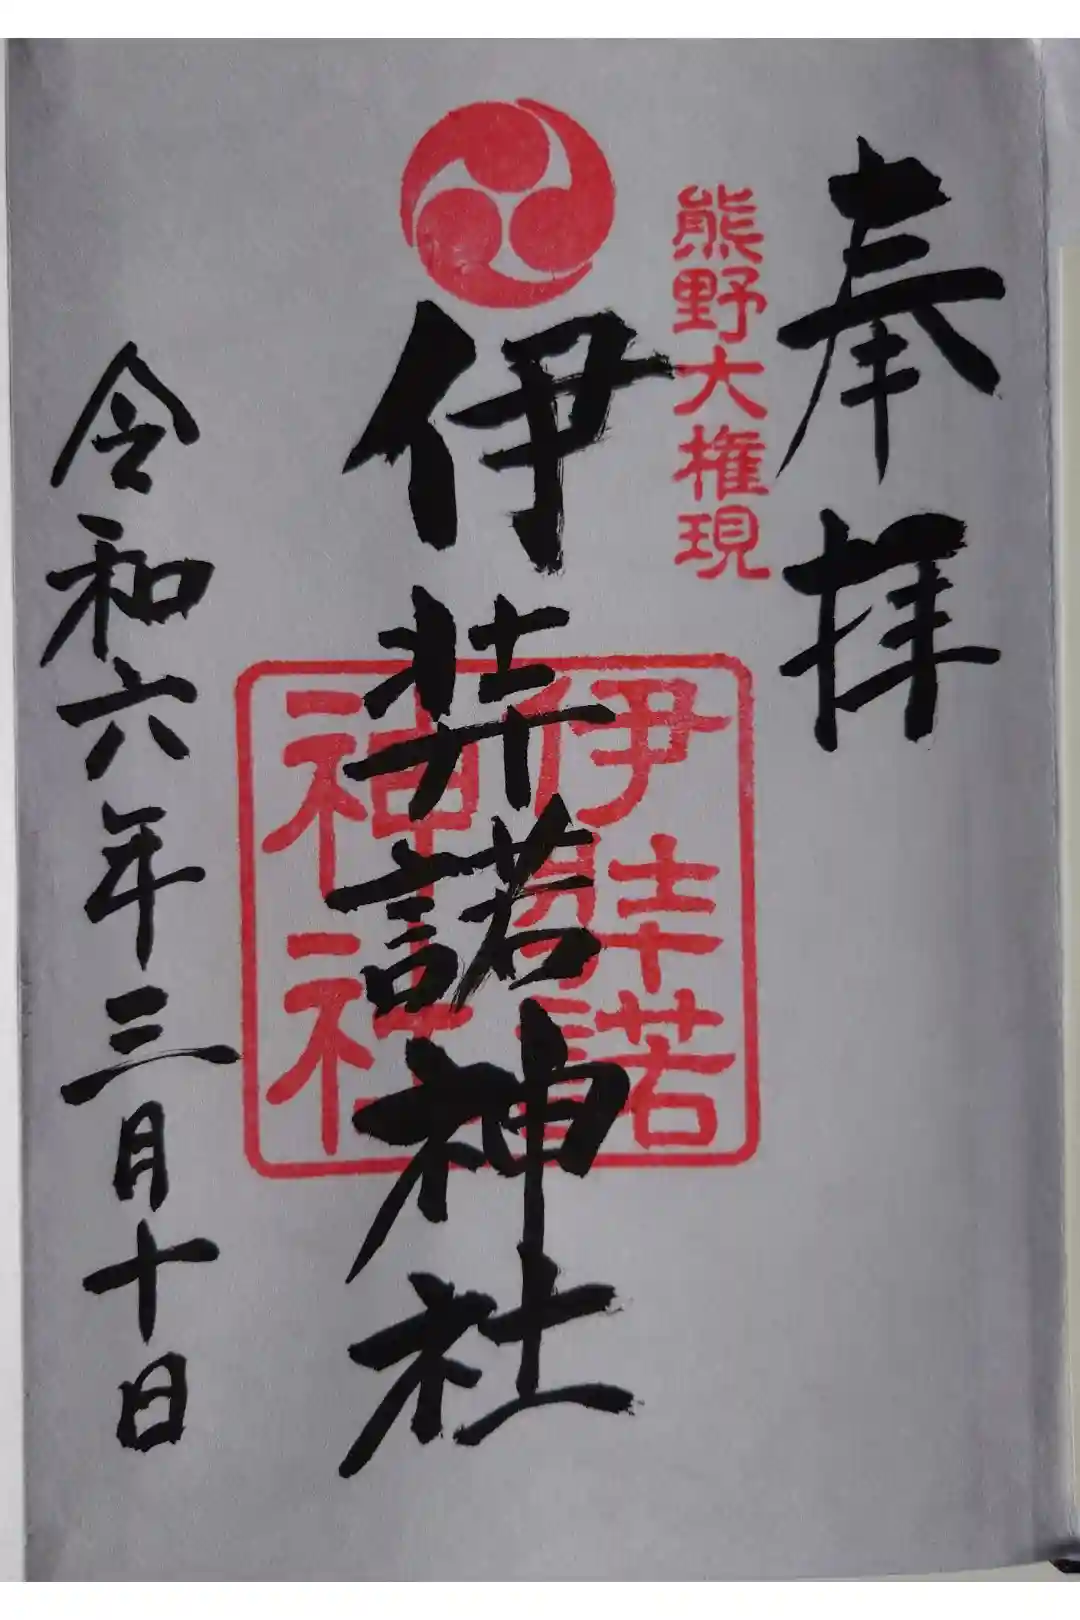 奉拝
熊野大権現
伊弉諾神社
伊弉諾
神社
令和六年三月十日